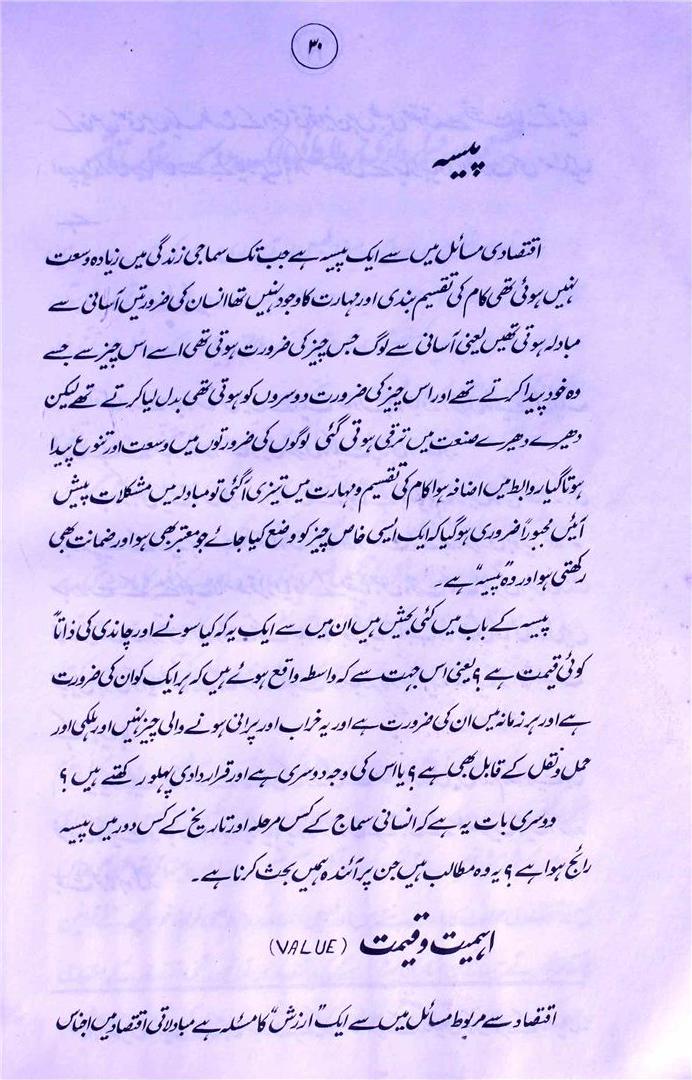 ۳۰
پیسہ
اقتصادی مسائل میں سے ایک پیسہ ہے جب تک سماجی زندگی میں زیادہ وسعت
نہیں ہوئی تھی کام کی تقسیم بندی اور مہارت کا وجود نہیں تھا انسان کی ضرورتیں آسانی سے
مبادلہ ہوتی تھیں یعنی آسانی سے لوگ جس چیز کی ضرورت ہوتی تھی اسے اس چیز سے جسے
وہ خود پیدا کرتے تھے اور اس چیز کی ضرورت دوسروں کو ہوتی تھی بدل لیا کرتے تھے لیکن
دھیرے دھیرے صنعت میں ترقی ہوتی گئی لوگوں کی ضرورتوں میں وسعت اور تنوع پیدا
ہوتا گیا روابط میں اضافہ ہوا کام کی تقسیم و مہارت میں تیزی آگئی تو مبادلہ میں مشکلات پیش
آئیں مجبوراً ضروری ہو گیا کہ ایک ایسی خاص چیز کو وضع کیا جائے جو معتبر بھی ہو اور ضمانت بھی
رکھتی ہو اور وہ "پیسہ" ہے۔
پیسہ کے باب میں کئی بحثیں ہیں ان میں سے ایک یہ کہ کیا سونے اور چاندی کی ذاتاً
کوئی قیمت ہے؟ یعنی اس جہت سے کہ واسطہ واقع ہوئے ہیں کہ ہر ایک کو ان کی ضرورت
ہے اور ہر زمانہ میں ان کی ضرورت ہے اور یہ خراب اور پرانی ہونے والی چیز نہیں اور ہلکی اور
حمل و نقل کے قابل بھی ہے؟ یا اس کی وجہ دوسری ہے اور قرار دادی پہلو رکھتے ہیں؟
دوسری بات یہ ہے کہ انسانی سماج کے کس مرحلہ اور تاریخ کے کس دور میں پیسہ
رائج ہوا ہے؟ یہ وہ مطالب ہیں جن پر آئندہ ہمیں بحث کرنا ہے۔
اہمیت و قیمت (VALUE)
اقتصاد سے مربوط مسائل میں سے ایک "ارزش" کا مسئلہ ہے مبادلاتی اقتصاد میں اجناس